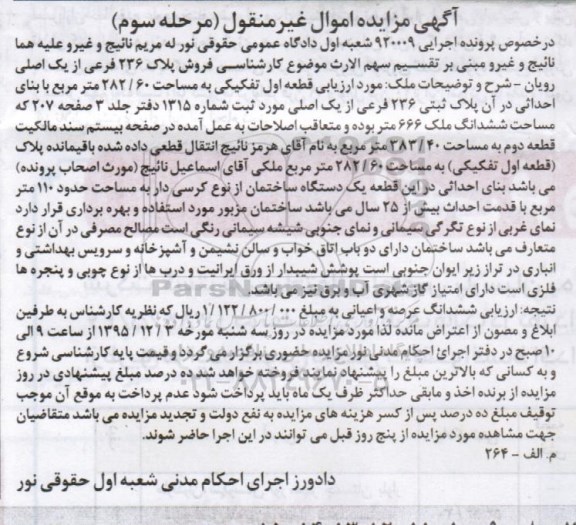 آگهی مزایده اموال غیر منقول (مرحله سوم)
درخصوص پرونده اجرایی ۹۲۰۰۰۹ شعبه اول دادگاه عمومی حقوقی نور له مریم نائیج و غیرو علیه هما
نائیج و غیرو مبنی بر تقسیم سهم الارث موضوع کارشناسی فروش پلاک ۲۳۶ فرعی از یک اصلی
رویان - شرح و توضیحات ملک: مورد ارزیابی قطعه اول تفکیکی به مساحت ۲۸۲/۶۰ متر مربع با بنای
احداثی در آن پلاک ثبتی ۲۳۶ فرعی از یک اصلی مورد ثبت شماره ۱۳۱۵ دفتر جلد ۳ صفحه ۲۰۷ که
مساحت ششدانگ ملک ۶۶۶ متر بوده و متعاقب اصلاحات به عمل آمده در صفحه بیستم سند مالکیت
قطعه دوم به مساحت ۳۸۳/۴۰ متر مربع به نام آقای هرمز نائیج انتقال قطعی داده شده باقیمانده پلاک
(قطعه اول تفکیکی) به مساحت ۲۸۲/۶۰ متر مربع ملکی آقای اسماعیل نائیج (مورث اصحاب پرونده)
می باشد بنای احداثی در این قطعه یک دستگاه ساختمان از نوع کرسی دار به مساحت حدود ۱۱۰ متر
مربع با قدمت احداث بیش از ۲۵ سال می باشد ساختمان مزبور مورد استفاده و بهره برداری قرار دارد
نمای غربی از نوع تگرگی سیمانی و نمای جنوبی شیشه سیمانی رنگی است مصالح مصرفی در آن از نوع
متعارف می باشد ساختمان دارای دو باب اتاق خواب و سالن نشیمن و آشپزخانه و سرویس بهداشتی و
انباری در تراز زیر ایوان جنوبی است پوشش شیبدار از ورق ایرانیت و درب ها از نوع چوبی و پنجره ها
فلزی است دارای امتیاز گاز شهری آب و برق نیز می باشد
نتیجه: ارزیابی ششدانگ عرصه و اعیانی به مبلغ ۱/۱۲۲/۸۰۰/۰۰۰ ریال که نظریه کارشناس به طرفین
ابلاغ و مصون از اعتراض مانده لذا مورد مزایده در روز سه شنبه مورخه ۱۳۹۵/۱۲/۳ از ساعت ۹ الی
۱۰ صبح در دفتر اجرای احکام مدنی نور مزایده حضوری برگزار می گردد و قیمت پایه کارشناسی شروع
و به کسانی که بالاترین مبلغ را پیشنهاد نمایند فروخته خواهد شد ده درصد مبلغ پیشنهادی در روز
مزایده از برنده اخذ و مابقی حداکثر ظرف یک ماه باید پرداخت شود عدم پرداخت به موقع آن موجب
توقیف مبلغ ده درصد پس از کسر هزینه های مزایده به نفع دولت و تجدید مزایده می باشد متقاضیان
جهت مشاهده مورد مزایده از پنج روز قبل می توانند در این اجرا حاضر شوند.
م. الف - ۲۶۴
دادورز اجرای احکام مدنی شعبه اول حقوقی نور
ParsNamadData
۰۲۱-۸۸۳۴۹۶۷۰-۵